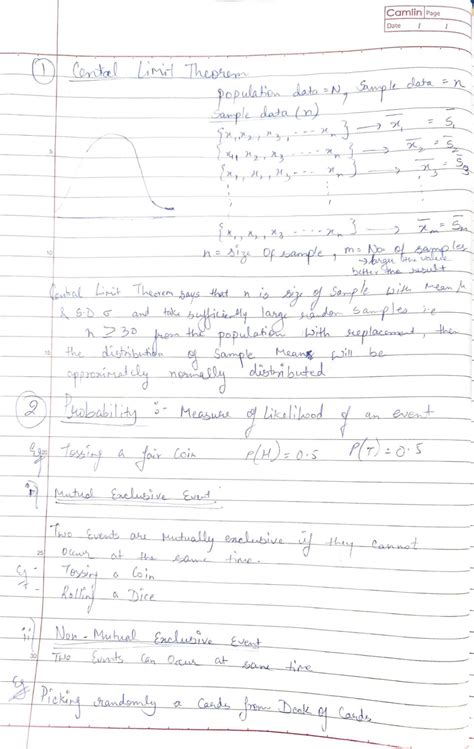 Camlin Page
Date / /
① Central Limit Theorem
population data = N, Sample data = n
Sample data (n)
{x₁, x₂, x₃, ... xₙ} → x̄₁ = S̄₁
{x₁, x₂, x₃ ... xₙ} → x̄₂ = S̄₂
{x₁, x₂, x₃ ... xₙ} → x̄₃ = S̄₃
{x₁, x₂, x₃ ... xₙ} → x̄ₘ = S̄ₘ
n = size of sample, m = No. of samples
→ larger the value
better the result
Central Limit Theorem says that n is size of Sample with Mean μ
& S.D σ and take sufficiently large random samples i.e
n ≥ 30 from the population with replacement, then
the distribution of Sample Means will be
approximately normally distributed
② Probability :- Measure of Likelihood of an event
Eg Tossing a fair Coin P(H) = 0.5 P(T) = 0.5
i) Mutual Exclusive Event
Two Events are Mutually exclusive if they cannot
Occur at the same time.
Eg - Tossing a Coin
- Rolling a Dice
ii) Non-Mutual Exclusive Event
Two Events Can Occur at same time
Eg Picking randomly a Cards from Deck of Cards